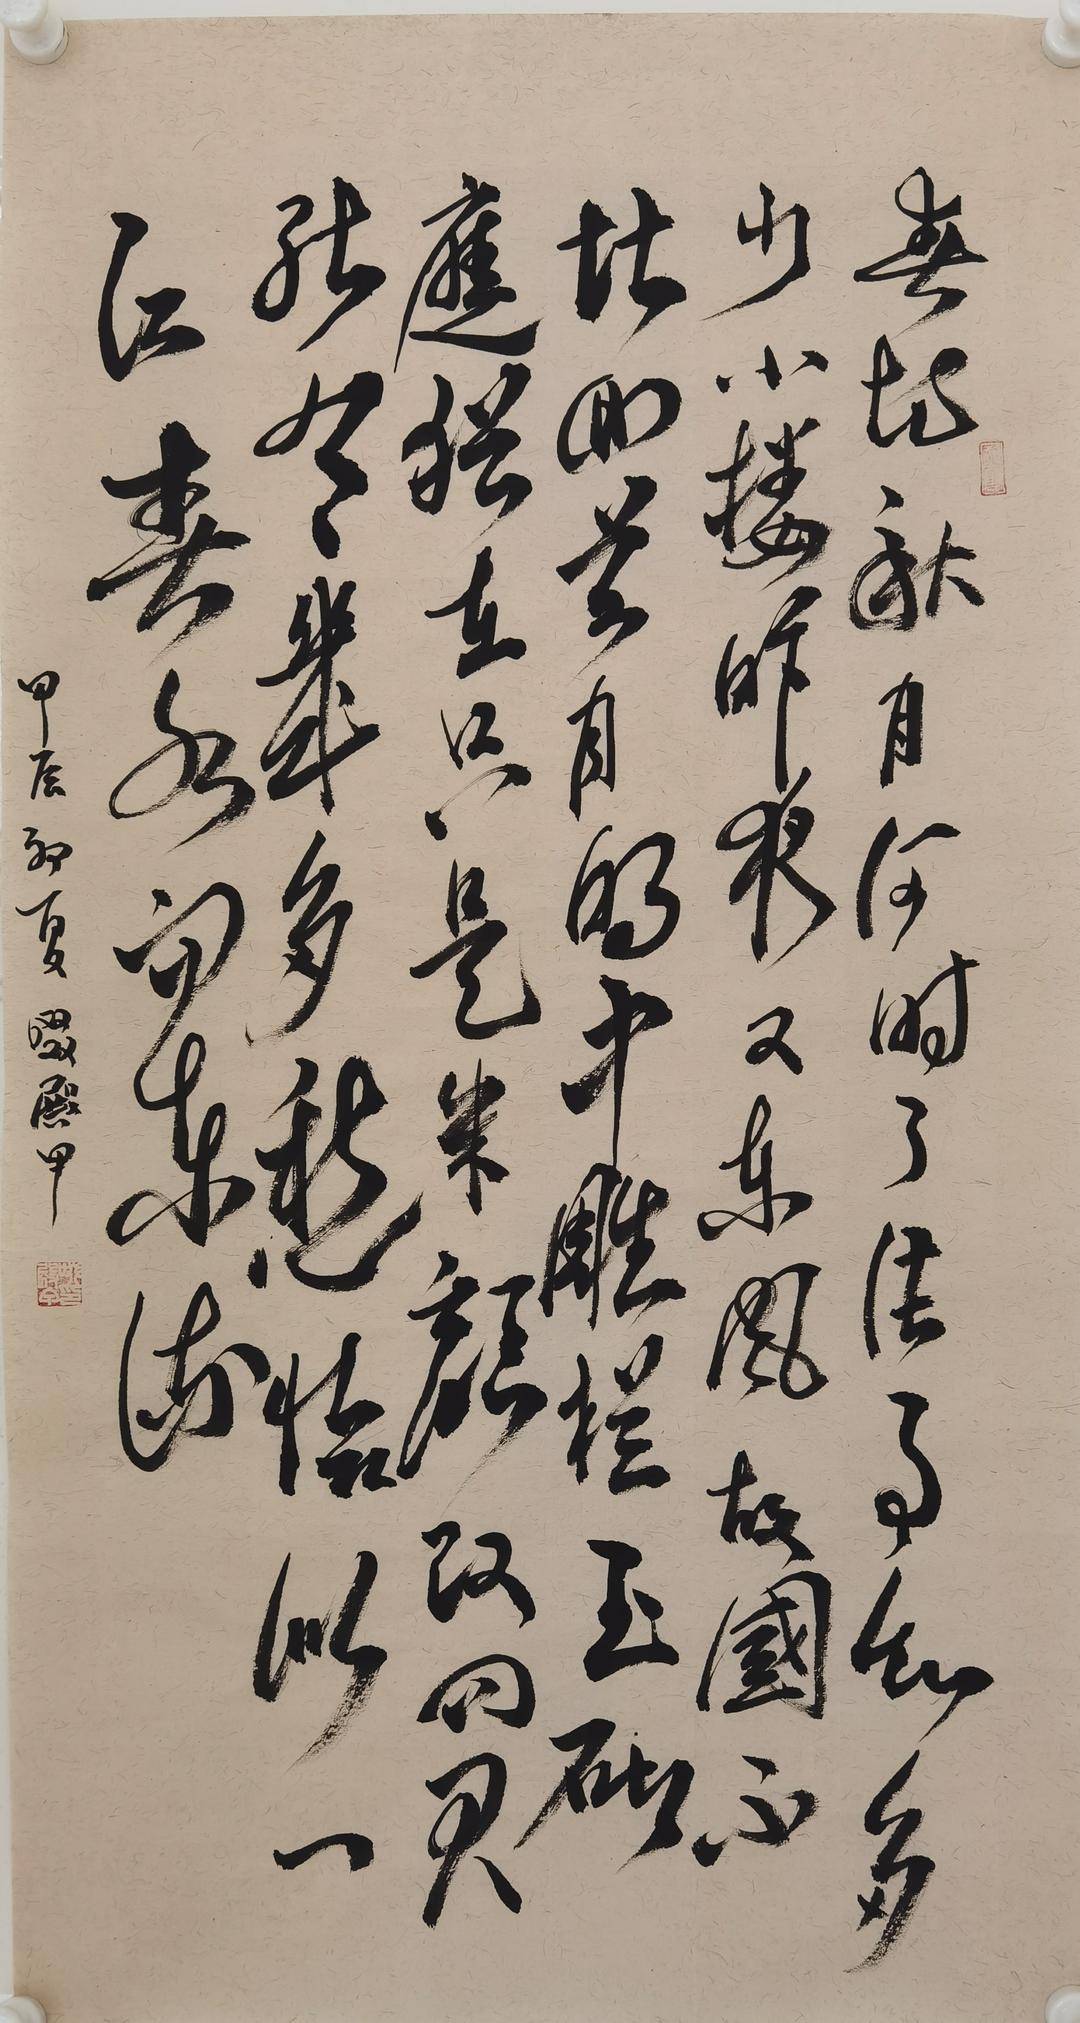 春花秋月何时了往事知多
少小楼昨夜又东风故國不
堪回首月明中雕栏玉砌
應猶在只是朱顔改问君
能有幾多愁恰似一
江春水向东流
甲辰初夏殿甲